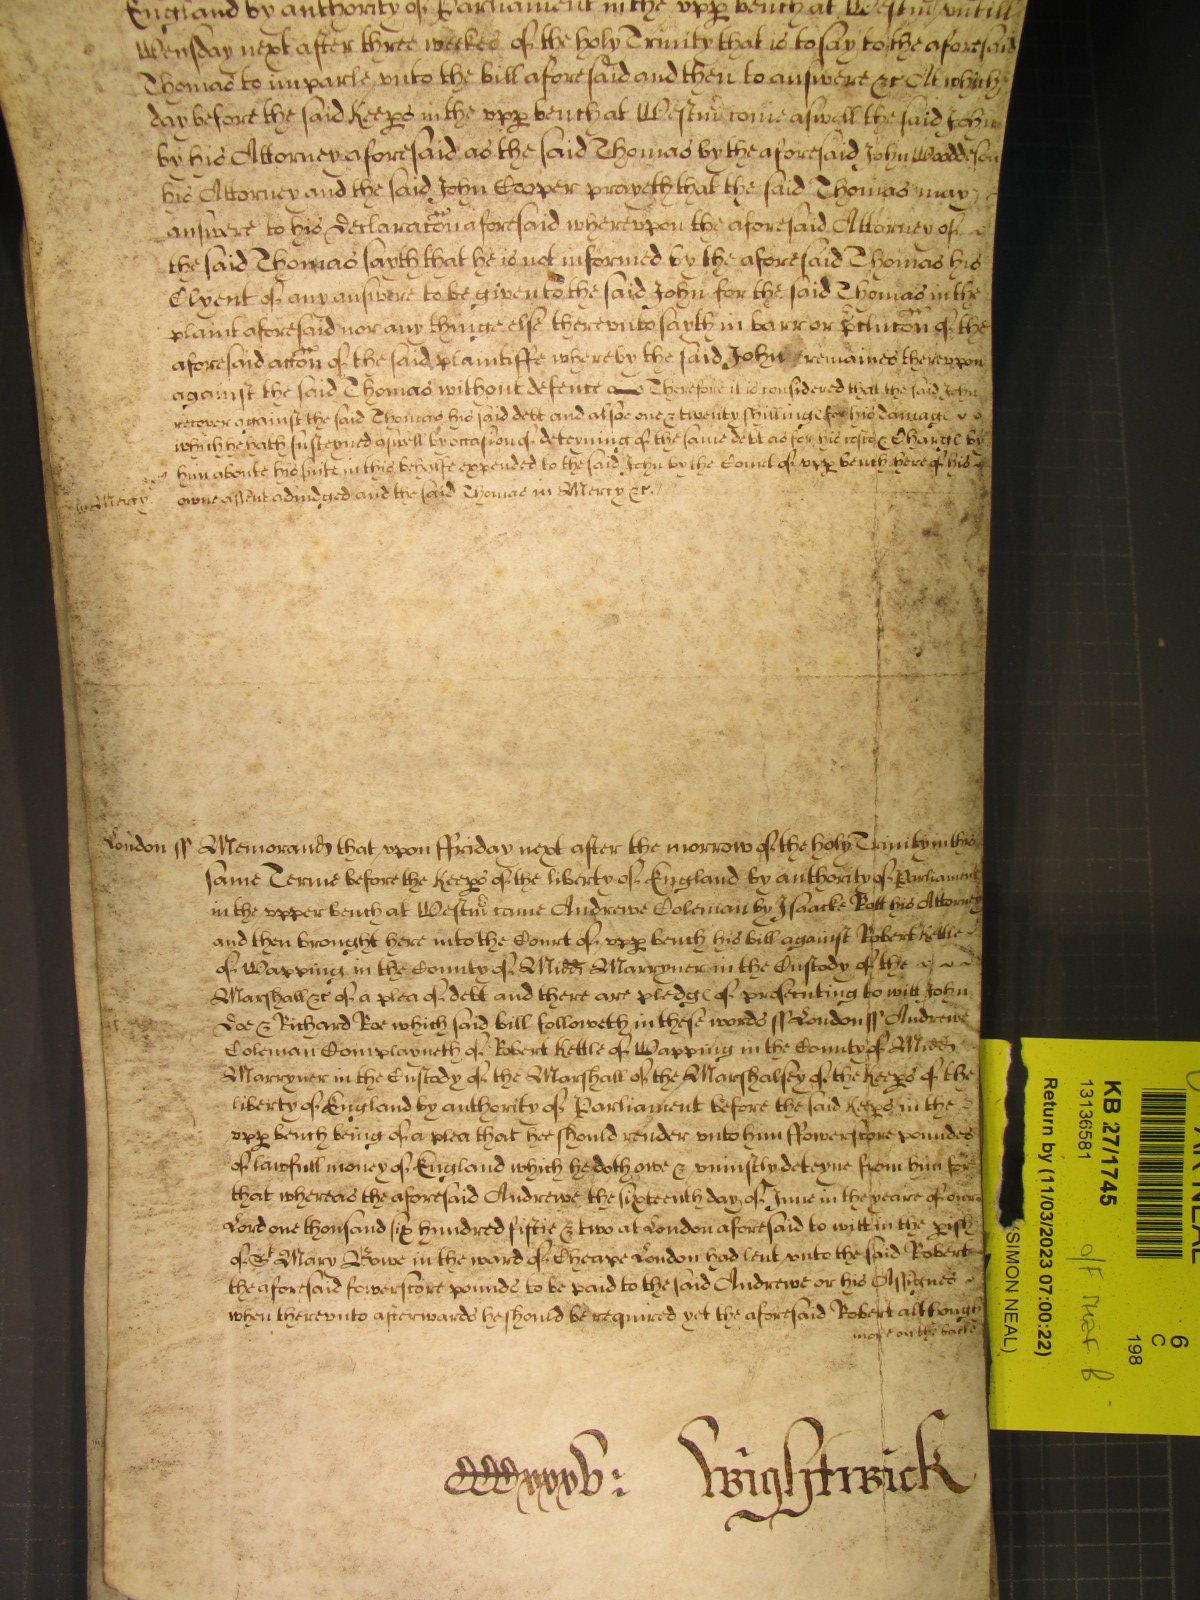 England by authority of Parliament in the upp bench at Westmr untill
Wensday next after three weekes of the holy Trinity that is to say to the aforesaid
Thomas to imparle vnto the bill aforesaid and then to answere &c At which
day before the said Keeps in the vpp bench at Westmr come aswell the said John
by his Attorney aforesaid as the said Thomas by the aforesaid John Wooddeson
his Attorney and the said John Cooper prayeth that the said Thomas may
answere to his Declaracon aforesaid wherevpon the aforesaid Attorney of
the said Thomas sayth that he is not informed by the aforesaid Thomas his
Clyent of any answere to be given to the said John for the said Thomas in the
plaint aforesaid nor any thinge else therevnto sayth in barr or pclucon of the
aforesaid accon of the said plaintiffe whereby the said John remaines therevpon
against the said Thomas without defence Therefore it is considered that the said John
recover against the said Thomas his said debt and alsoe one & twenty shillings for his damage
which he hath susteyned aswell by occasion of deteyning of the same debt as for his costs & Charges by
him aboute his suite in this behalfe expended to the said John by the Court of vpp bench here of his
owne assent adiudged and the said Thomas in Mercy &c.
in Mercy
London ss Memorand that vpon ffriday next after the morrow of the holy Trinity in this
same Terme before the Keeps of the liberty of England by authority of Parliament
in the vpper bench at Westmr came Andrewe Coleman by Isaacke Rott his Attorney
and then brought here into the Court of vpp bench his bill against Robert Kettle
of Wapping in the County of Midd Marryner in the Custody of the
Marshall &c of a plea of debt and there are pledges of prosecuting to witt John
Doe & Richard Roe which said bill followeth in these words ss London ss Andrewe
Coleman Complayneth of Robert Kettle of Wapping in the County of Midd
Marryner in the Custody of the Marshall of the Marshalsey of the Keeps of the
liberty of England by authority of Parliament before the said Keeps in the
vpp bench being of a plea that hee should render vnto him ffowerscore poundes
of lawfull money of England which he doth owe & vniustly deteyne from him for
that whereas the aforesaid Andrewe the sixteenth day of June in the yeare of our
Lord one thousand six hundred fiftie & two at London aforesaid to witt in the pish
of St Mary Bowe in the ward of Cheape London had lent vnto the said Robert
the aforesaid fowerscore pounds to be paid to the said Andrewe or his Assignes
when therevnto afterwards he should be required yet the aforesaid Robert although
more on the backe
CCCxxxv: Wightwick
KB 27/1745
13136581
Return by (11/03/2023 07:00:22)
(SIMON NEAL)
6
C
198